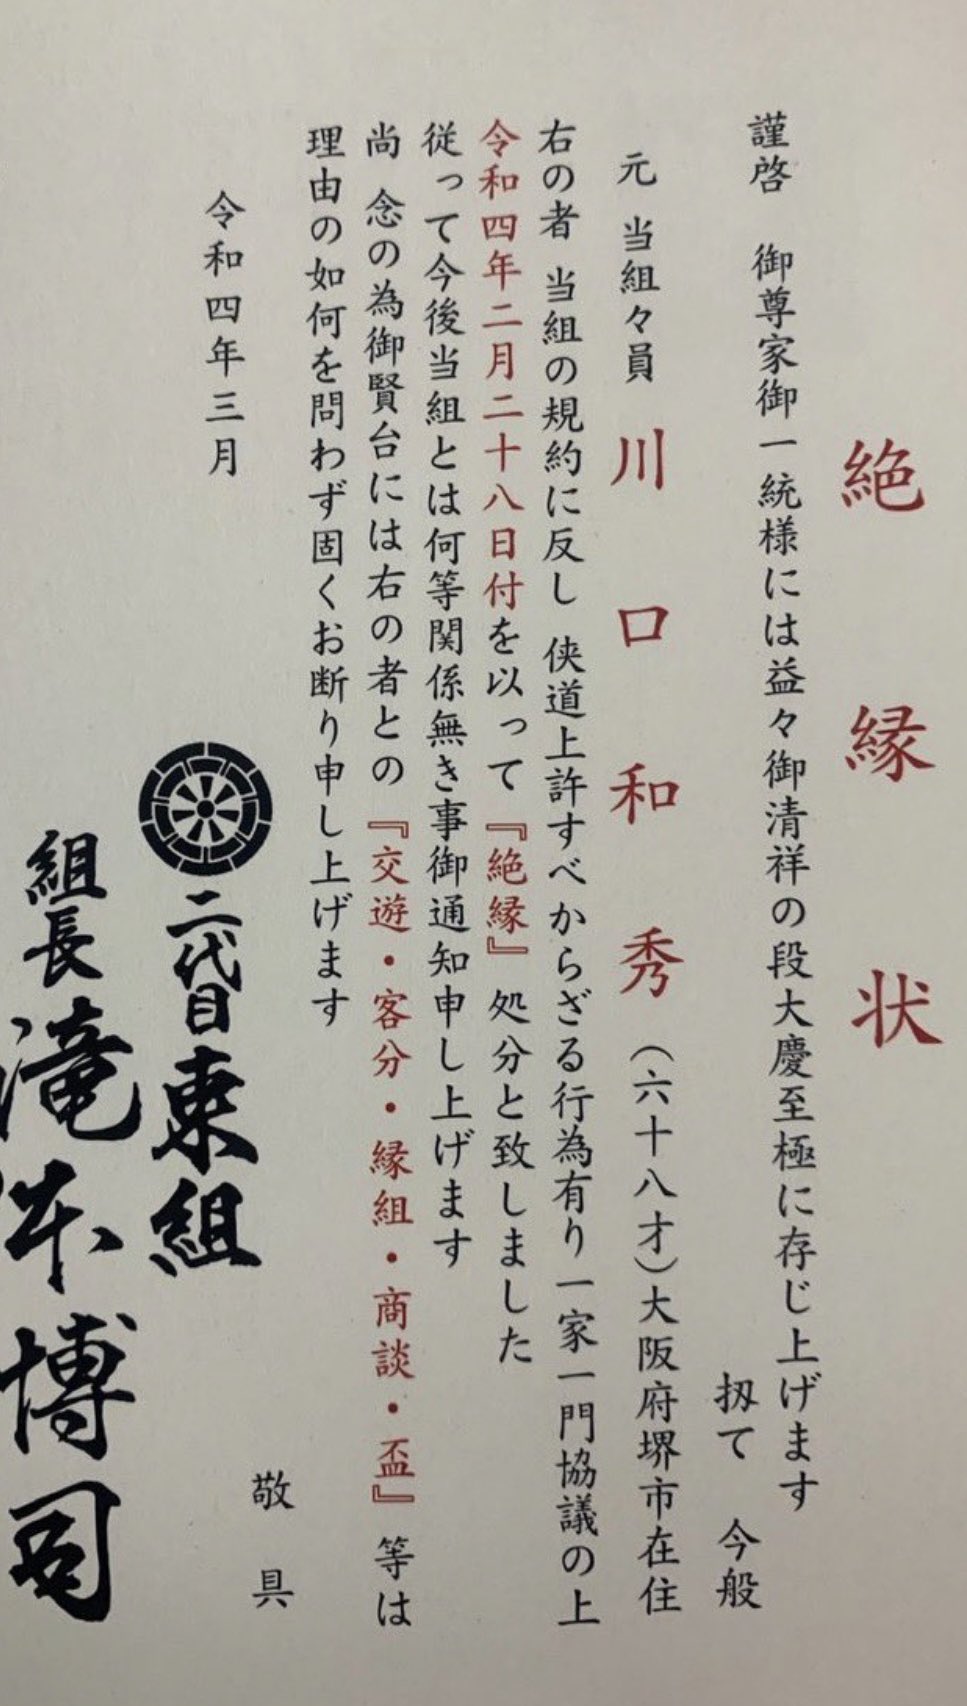 絶縁状
謹啓　御尊家御一統様には益々御清祥の段大慶至極に存じ上げます
扨て　今般
元 当組々員 川口和秀（六十八才）大阪府堺市在住
右の者 当組の規約に反し 侠道上許すべからざる行為有り一家一門協議の上
令和四年二月二十八日付を以って『絶縁』処分と致しました
従って今後当組とは何等関係無き事御通知申し上げます
尚 念の為御賢台には右の者との『交遊・客分・縁組・商談・盃』等は
理由の如何を問わず固くお断り申し上げます
敬具
令和四年三月
二代目東組
組長滝本博司